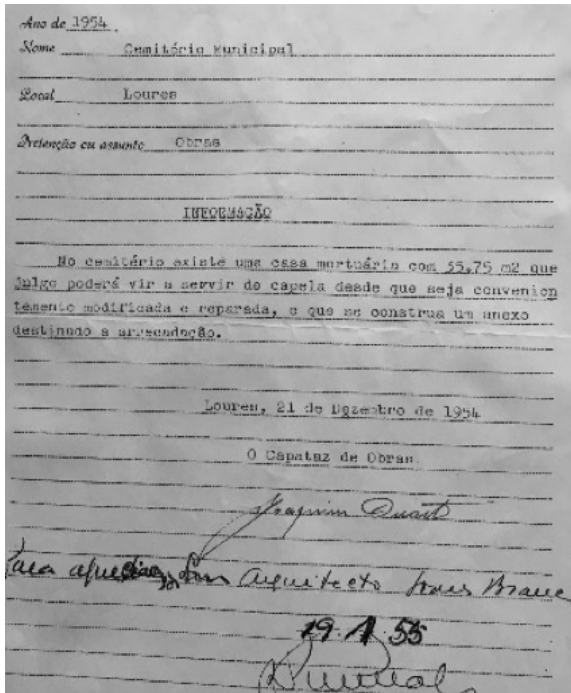 Ano de 1954.
Nome Cemitério Municipal
Local Loures
Pretenção ou assunto Obras
INFORMAÇÃO
No cemitério existe uma casa mortuária com 55,75 m2 que
julgo poderá vir a servir de capela desde que seja convenien
temente modificada e reparada, e que se construa um anexo
destinado a arrecadação.
Loures, 21 de Dezembro de 1954
O Capataz de Obras
Joaquim Duarte
Para apreciação Sr. Arquitecto
19 1 55